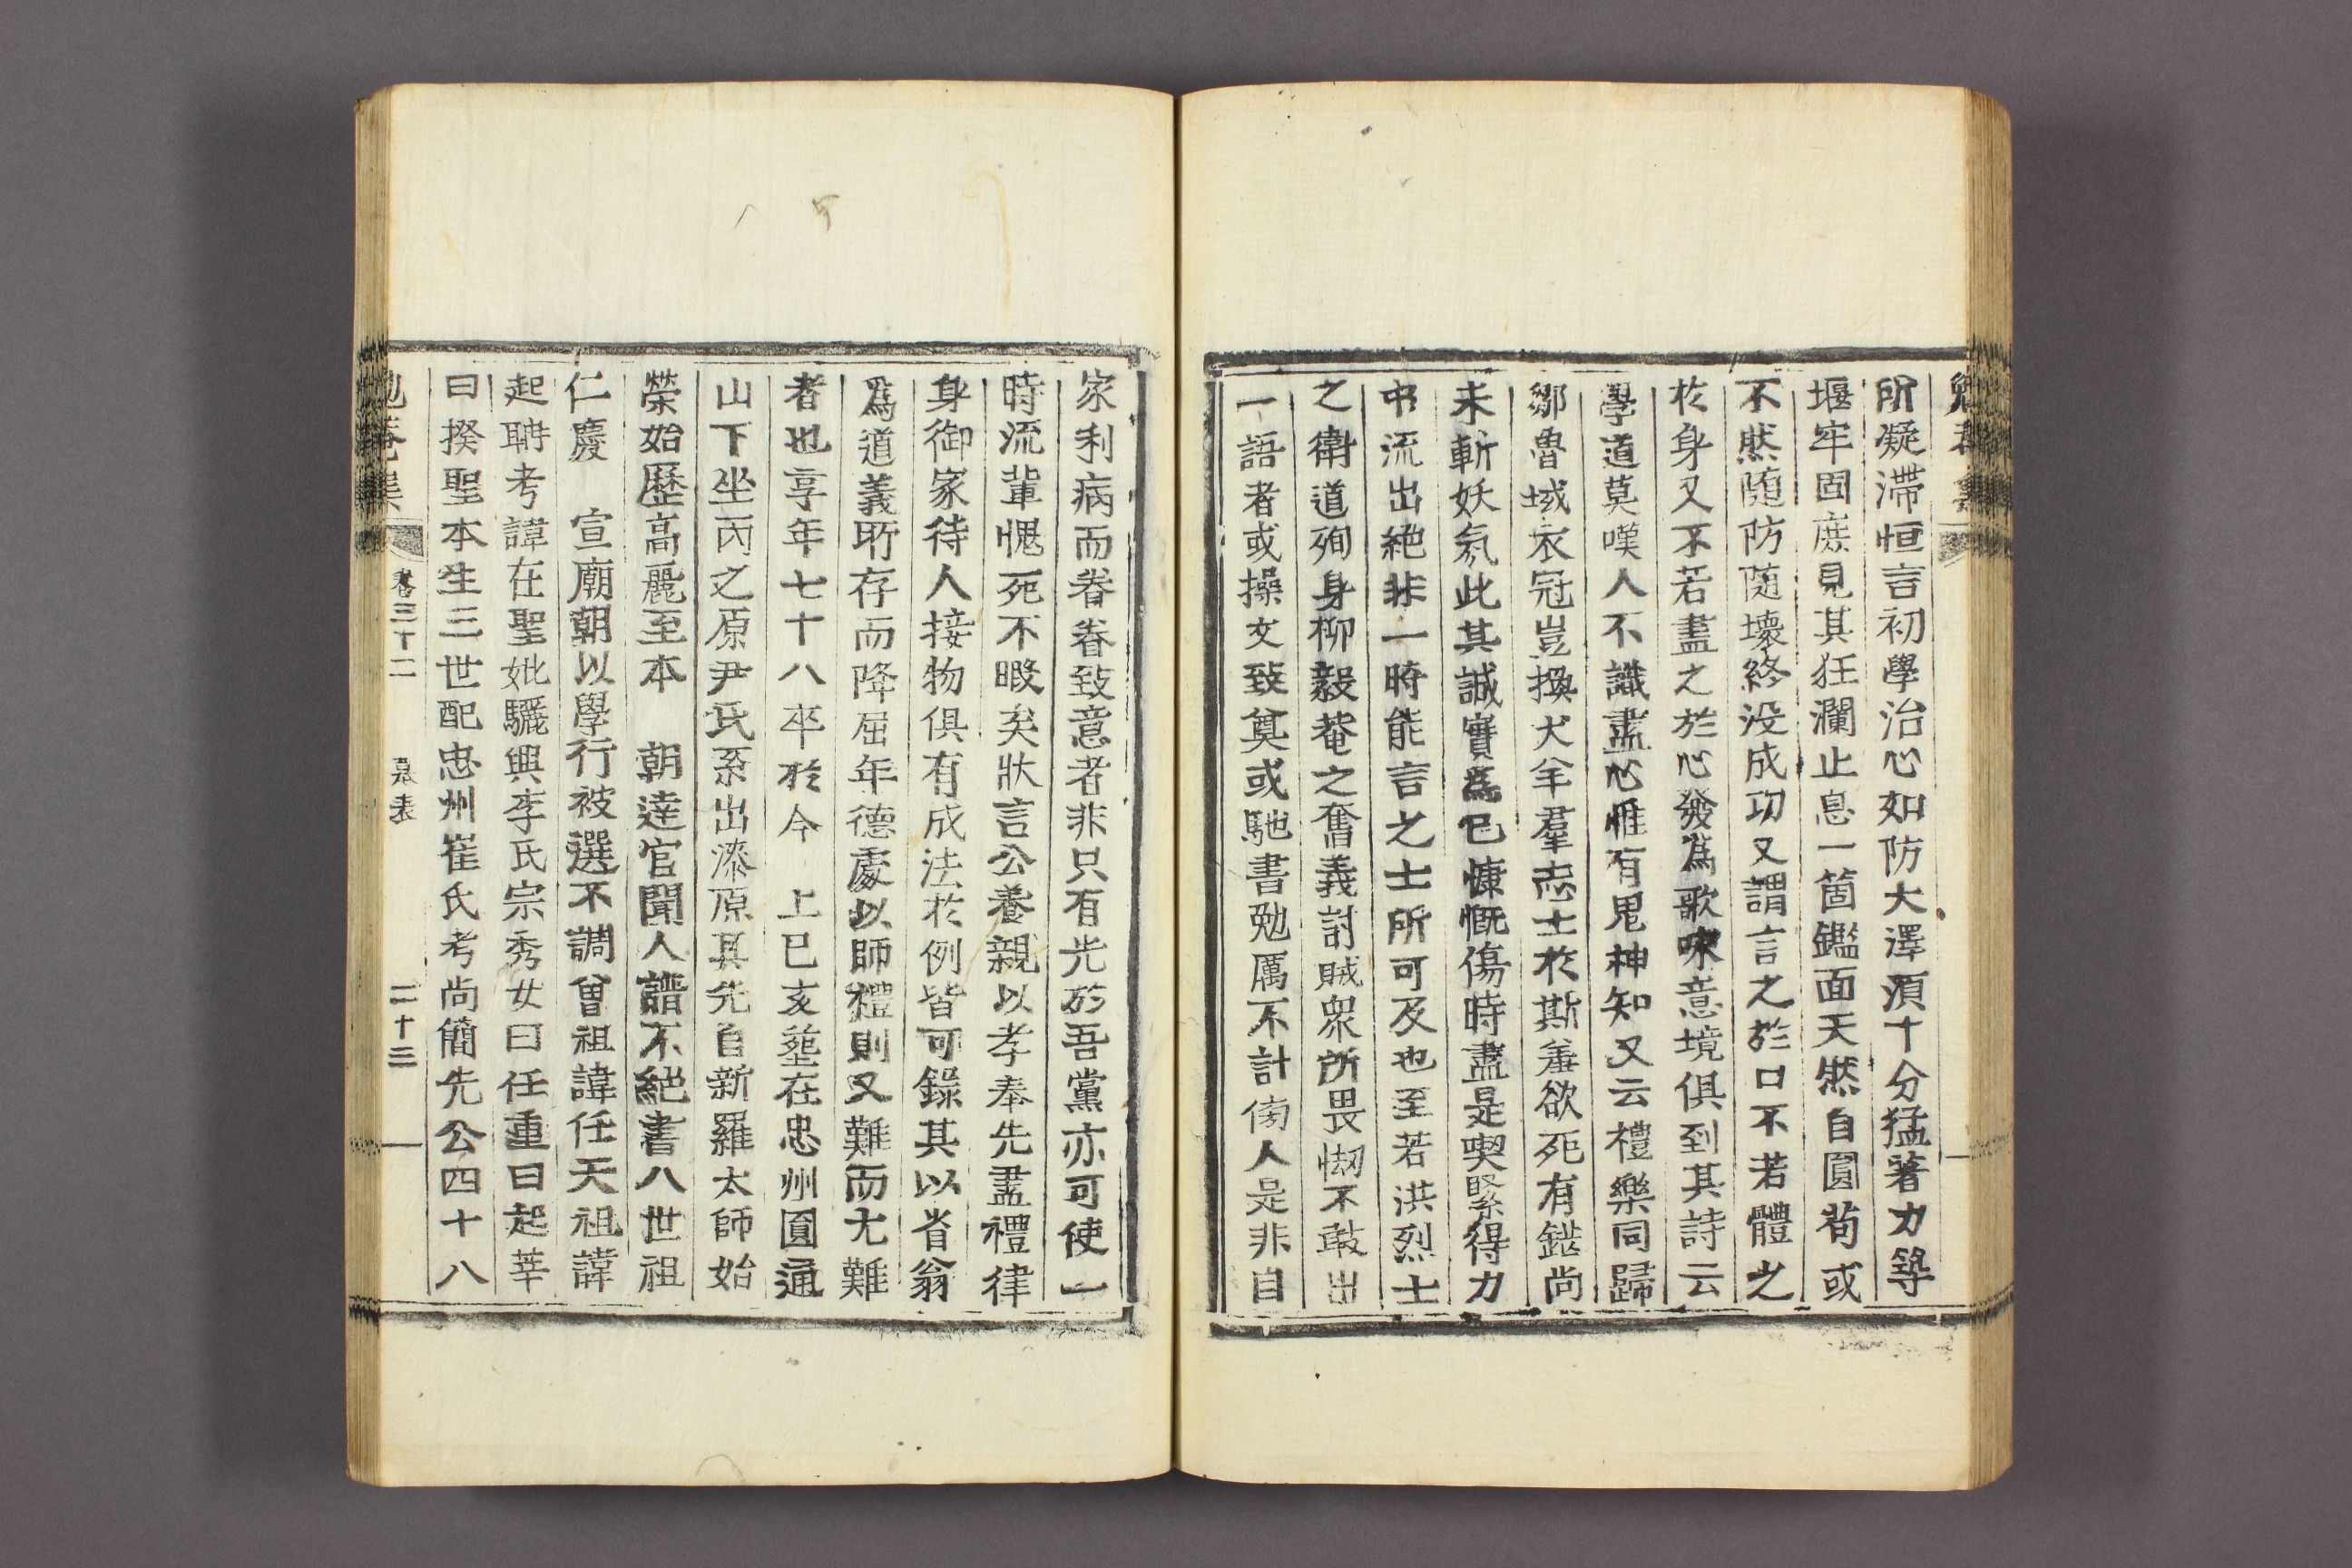 所凝滯恒言初學治心如防大澤湏十分猛著力築
堰牢固庶見其狂瀾止息一箇鑑面天然自圓苟或
不然随防随壞終没成功又謂言之於口不若體之
於身又不若盡之於心發爲歌咏意境俱到其詩云
學道莫嘆人不識盡心惟有鬼神知又云禮樂同歸
鄒魯域衣冠豈換犬羊羣志士於斯羞欲死有鋩尚
未斬妖氛此其誠實爲己慷慨傷時盡是喫緊得力
中流出絶非一時能言之士所可及也至若洪烈士
之衛道殉身柳毅菴之奮義討賊衆所畏㤼不敢出
一語者或操文致奠或馳書勉厲不計傍人是非自
家利病而眷眷致意者非只有光於吾黨亦可使一
時流輩愧死不暇矣狀言公養親以孝奉先盡禮律
身御家待人接物俱有成法於例皆可錄其以省翁
爲道義所存而降屈年德處以師禮則又難而尤難
者也享年七十八卒於今　上己亥塟在忠州圓通
山下坐丙之原尹氏系出漆原其先自新羅太師始
榮始歷高麗至本　朝達官聞人譜不絶書八世祖
仁慶　宣廟朝以學行被選不調曾祖諱任天祖諱
起聃考諱在聖妣驪興李氏宗秀女曰任重曰起莘
曰揆聖本生三世配忠州崔氏考尚簡先公四十八
勉菴集
卷三十二
墓表
二十三